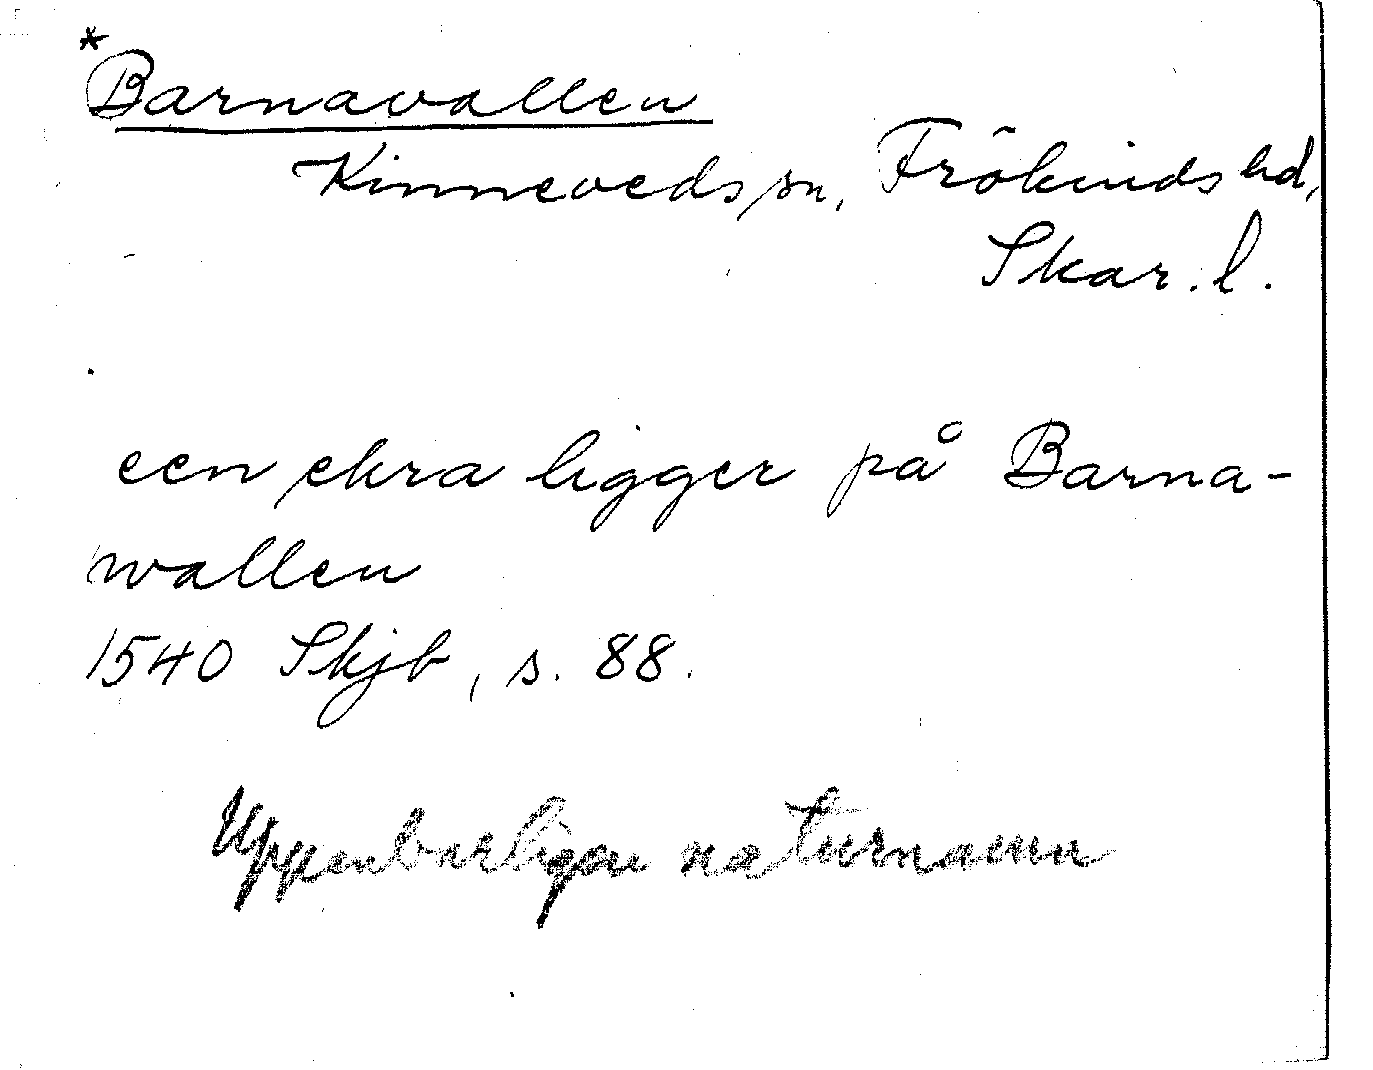 *Barnavallen
Kinneveds sn, Frökinds hd,
Skar. l.
een ekra ligger på Barna-
wallen
1540 Skjb, s. 88.
Uppenbarligen naturnamn